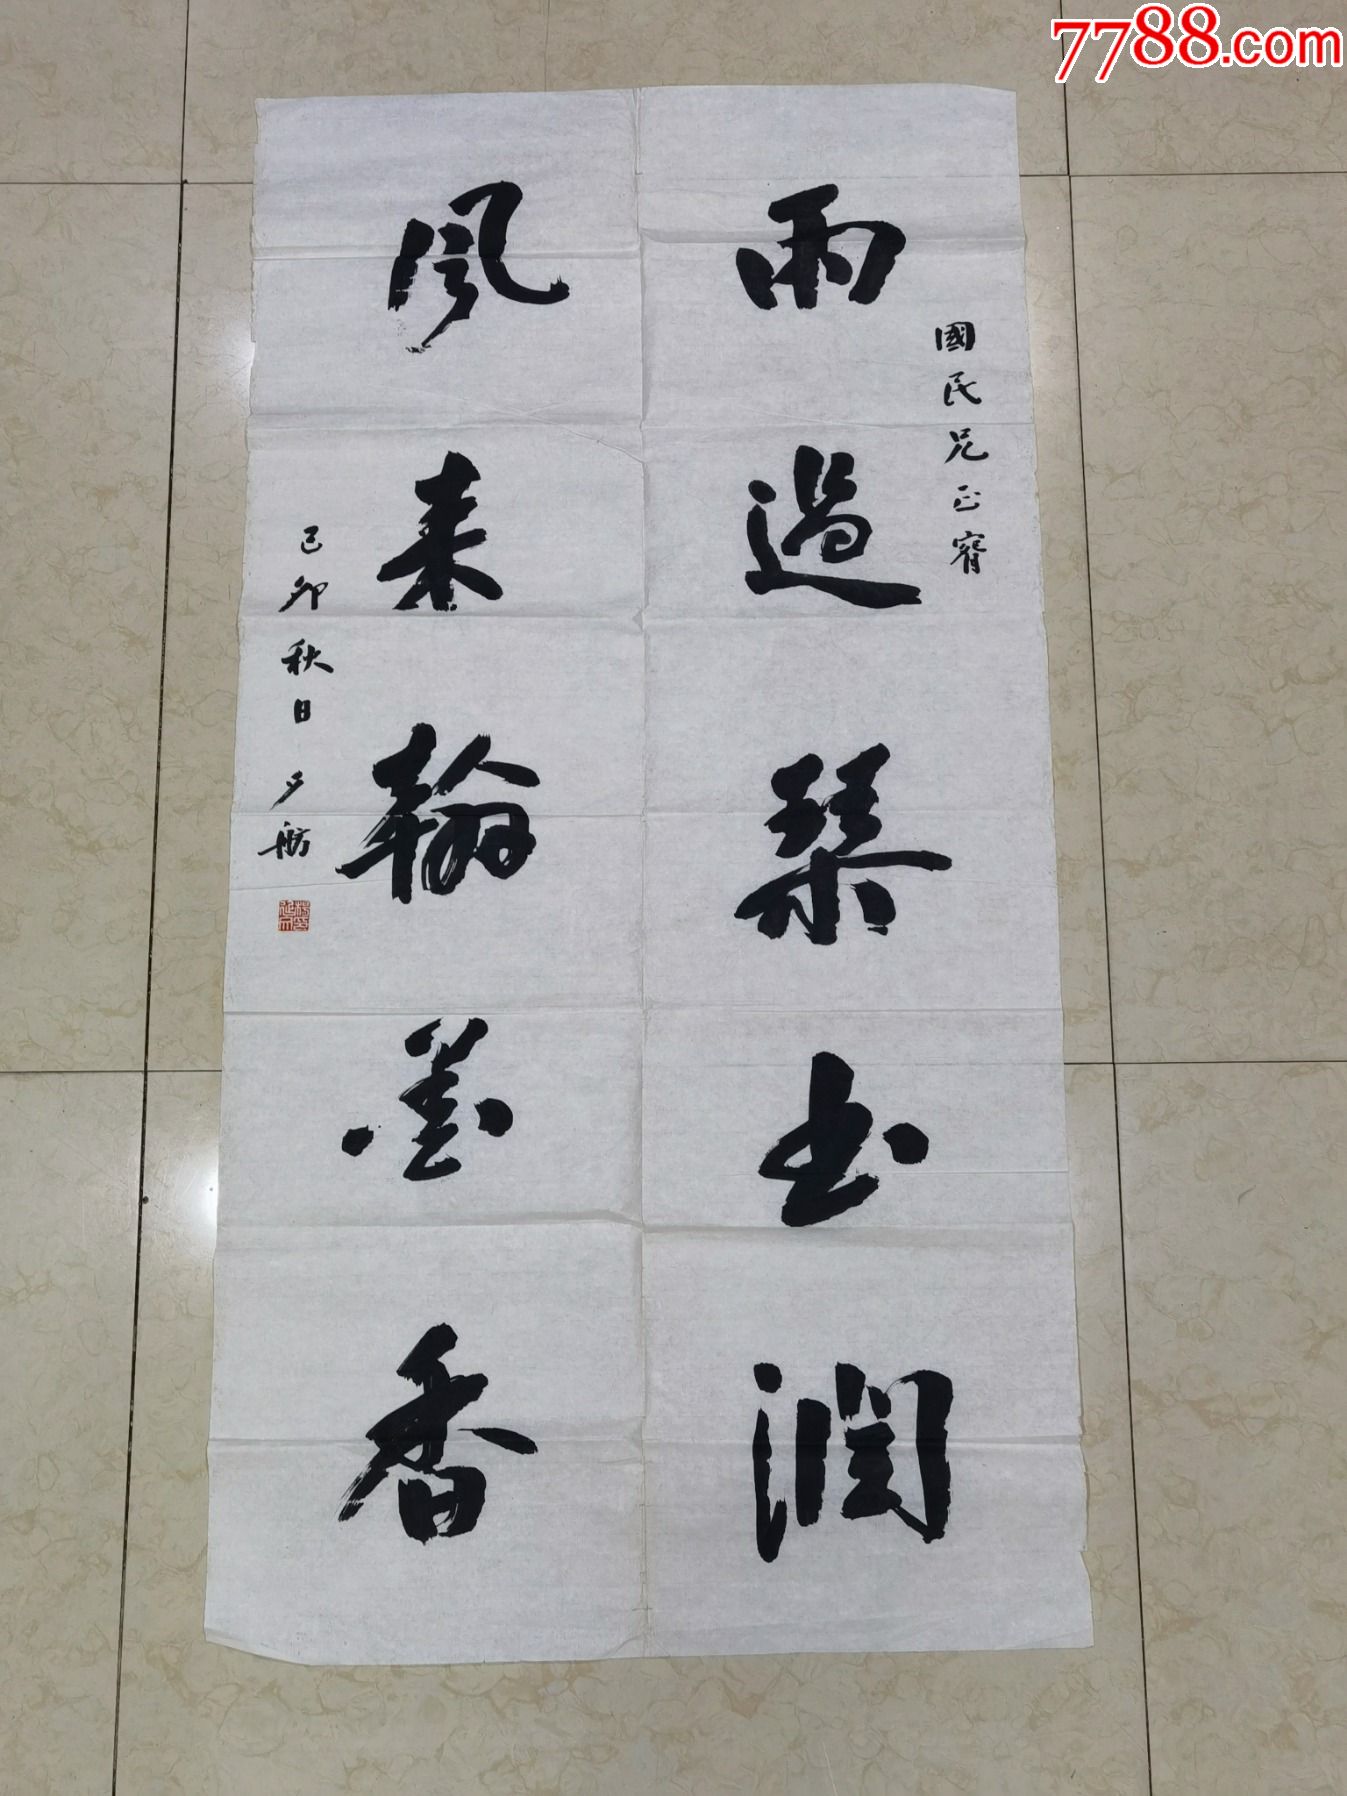 7788.com
國民兄正
雨過琴書潤
風来翰墨香
己卯秋日 夕舫